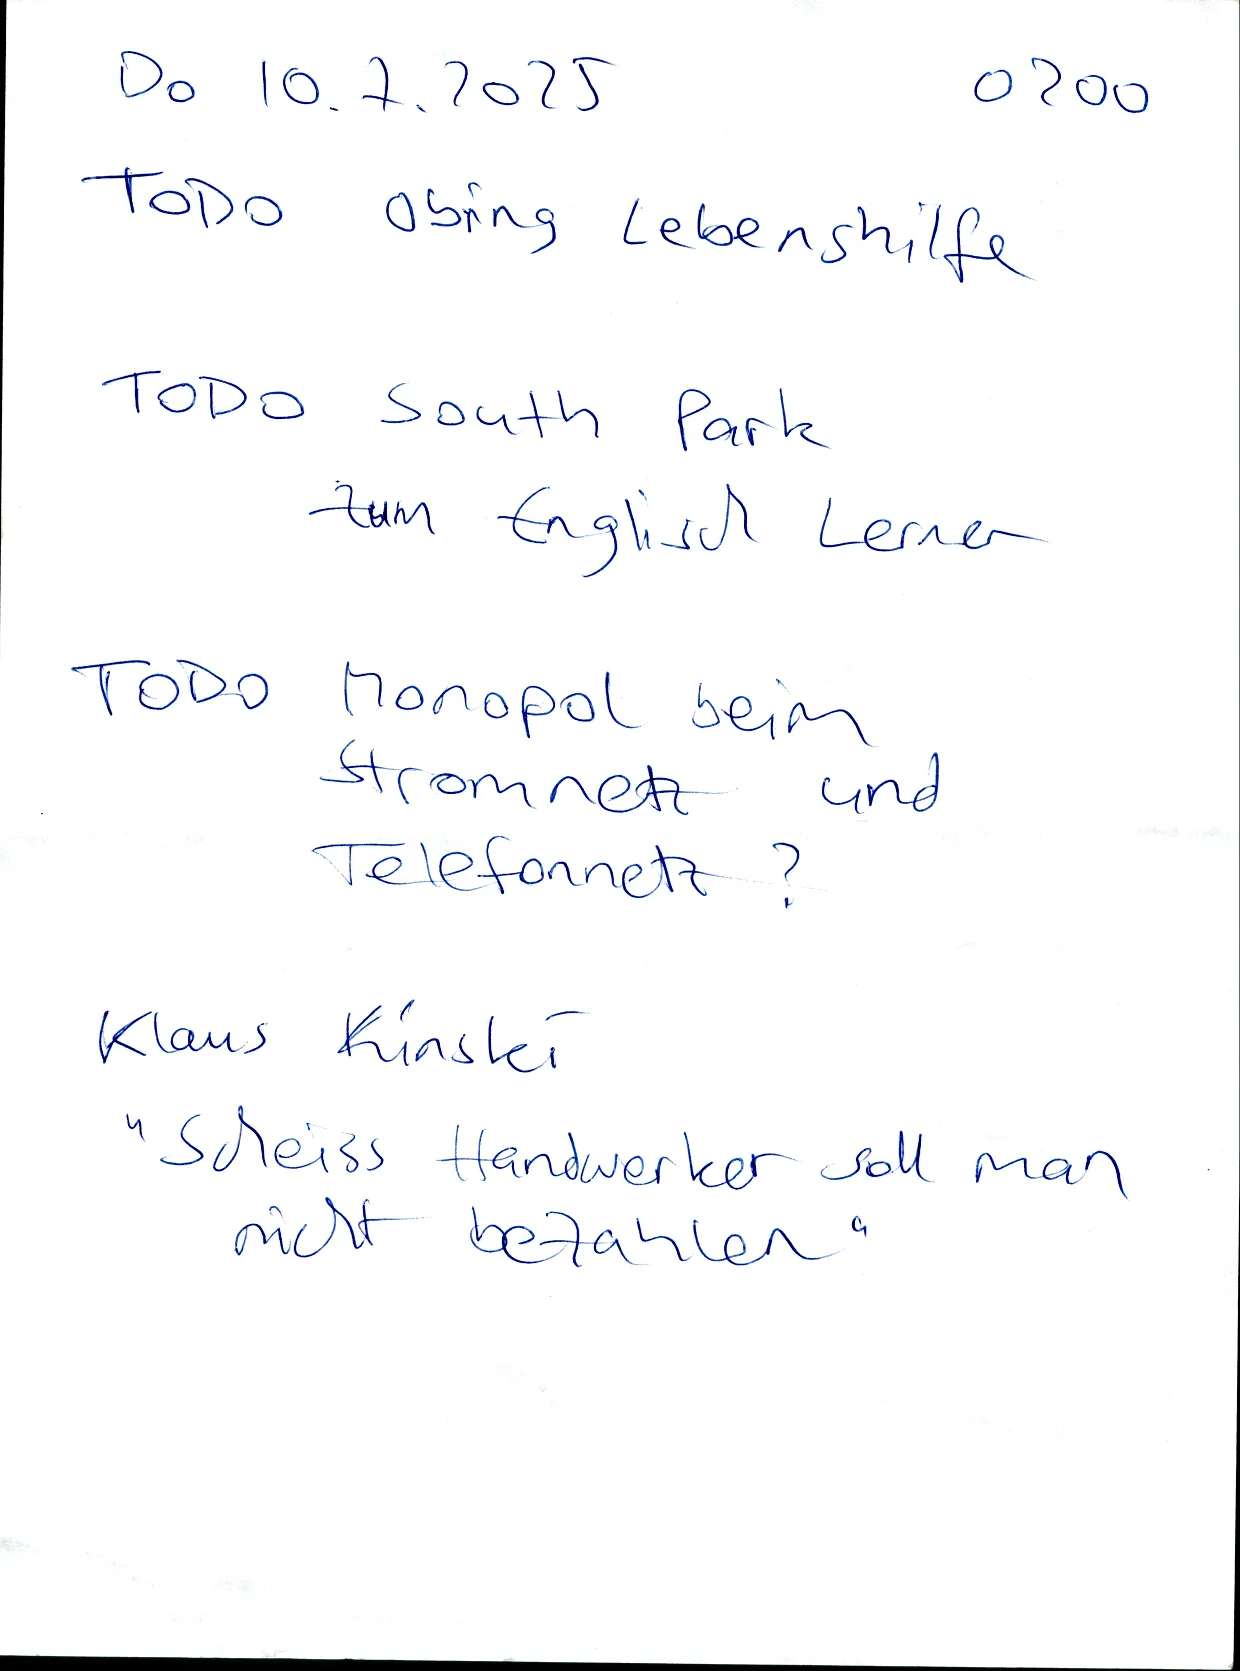 Do 10.7.2025 0200
TODO Obing Lebenshilfe
TODO South Park
zum Englisch Lernen
TODO Monopol beim
Stromnetz und
Telefonnetz ?
Klaus Kinski
"Scheiss Handwerker soll man
nicht bezahlen"